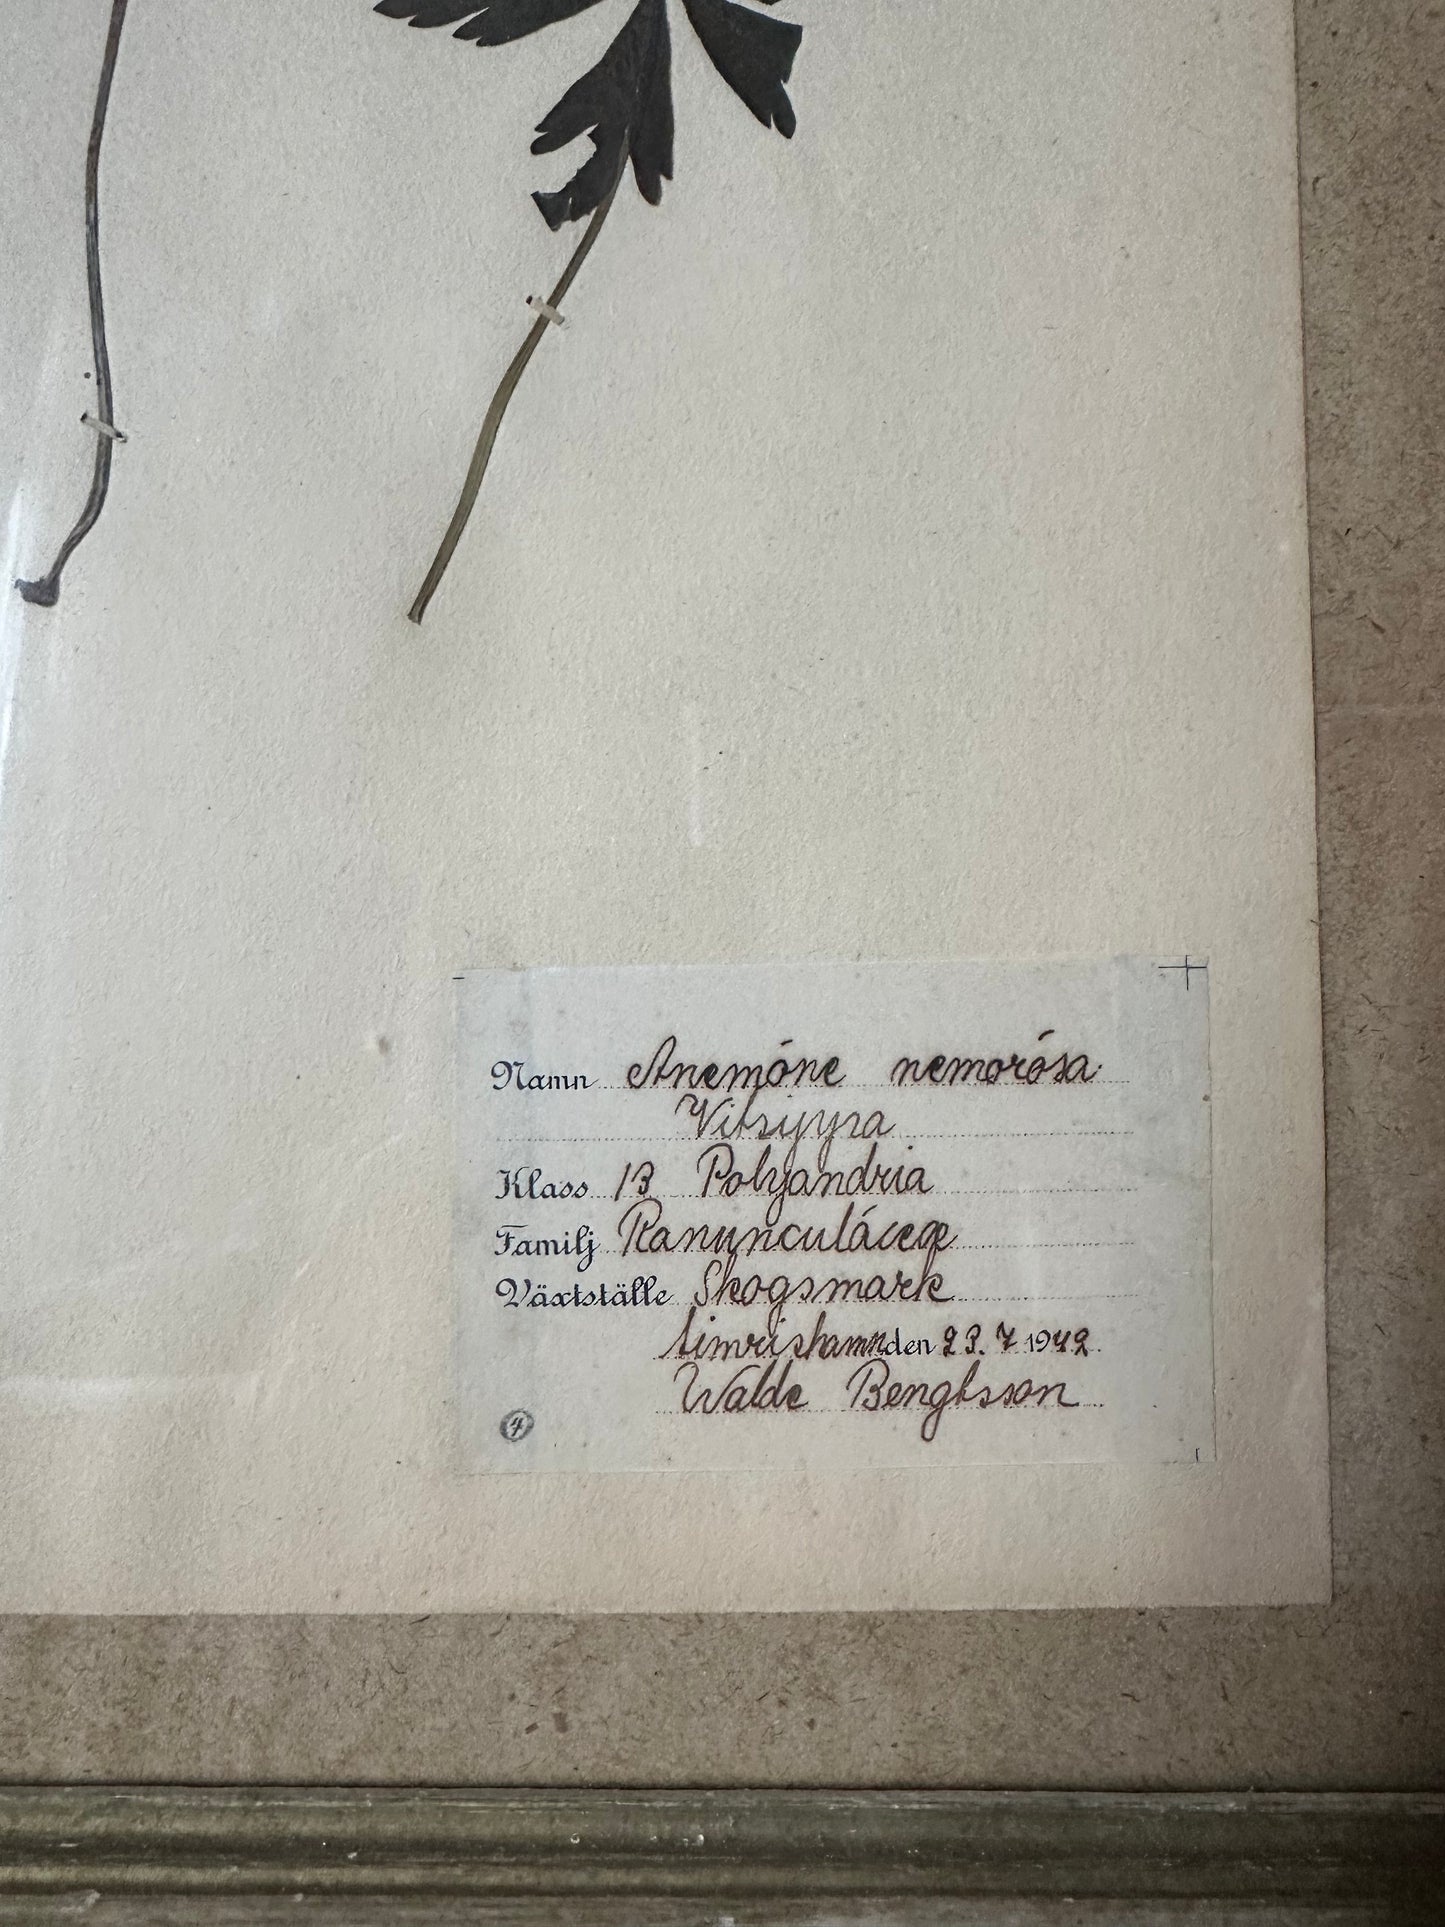 Namn Anemóne nemorósa
Vitsippa
Klass 13 Polyandria
Familj Ranunculáceæ
Växtställe Skogsmark
Simrishamn den 23. 7 1942
Walde Bengtsson
4